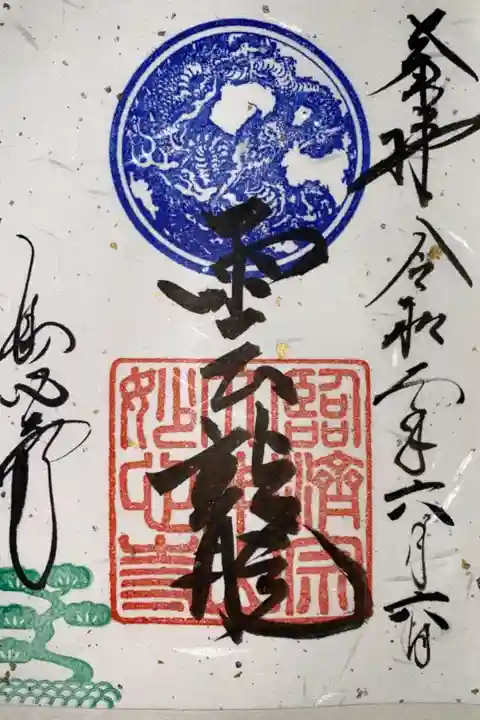 奉拝 令和二年六月六日
雲龍
臨済宗
大本山
妙心寺
妙心寺